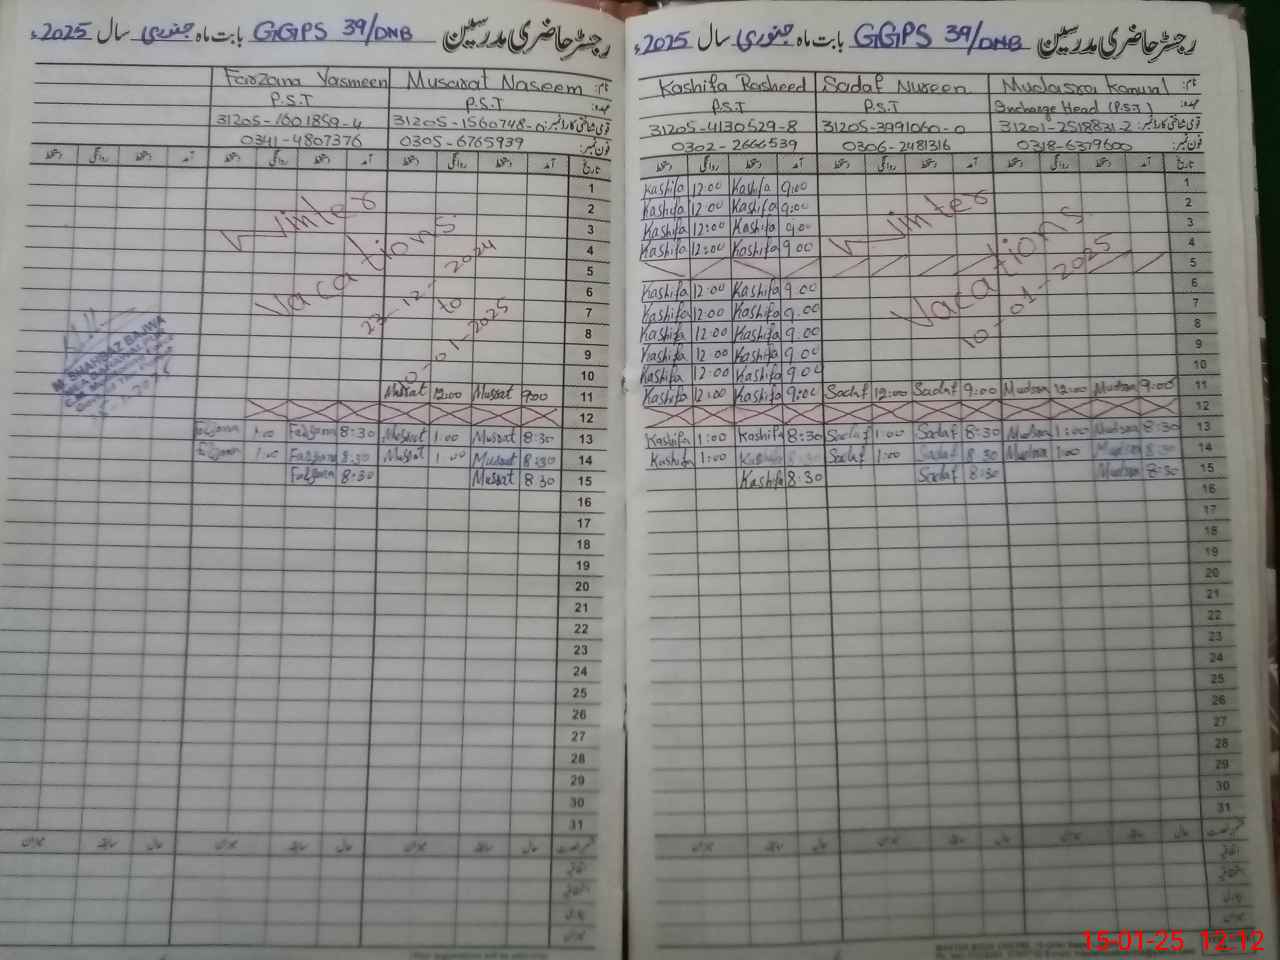 رجسٹر حاضری مدرسین GGPS 39/DNB بابت ماہ جنوری سال 2025ء
نام: Mudasra Kanwal Sadaf Nureen Kashifa Rasheed
عہدہ: Incharge Head (P.S.T) P.S.T P.S.T
قومی شناختی کارڈ نمبر: 31201-2518831-2 31205-3991060-0 31205-4130529-8
فون نمبر: 0318-6379600 0306-2481316 0302-2666539
تاریخ آمد دستخط روانگی دستخط آمد دستخط روانگی دستخط آمد دستخط روانگی دستخط
1 9:00 Kashifa 12:00 Kashifa
2 9:00 Kashifa 12:00 Kashifa
3 9:00 Kashifa 12:00 Kashifa
4 9:00 Kashifa 12:00 Kashifa
5
6 9:00 Kashifa 12:00 Kashifa
7 9:00 Kashifa 12:00 Kashifa
8 9:00 Kashifa 12:00 Kashifa
9 9:00 Kashifa 12:00 Kashifa
10 9:00 Kashifa 12:00 Kashifa
Winter
Vacations
10-01-2025
11 9:00 Mudasra 12:00 Mudasra 9:00 Sadaf 12:00 Sadaf 9:00 Kashifa 12:00 Kashifa
12
13 8:30 Mudasra 1:00 Mudasra 8:30 Sadaf 1:00 Sadaf 8:30 Kashifa 1:00 Kashifa
14 8:30 Mudasra 1:00 Mudasra 8:30 Sadaf 1:00 Sadaf 8:30 Kashifa 1:00 Kashifa
15 8:30 Mudasra 8:30 Sadaf 8:30 Kashifa
16
17
18
19
20
21
22
23
24
25
26
27
28
29
30
31
رجسٹر حاضری مدرسین GGPS 39/DNB بابت ماہ جنوری سال 2025ء
نام: Musarat Naseem Farzana Yasmeen
عہدہ: P.S.T P.S.T
قومی شناختی کارڈ نمبر: 31205-1560748-0 31205-1601859-4
فون نمبر: 0305-6765939 0341-4807376
تاریخ آمد دستخط روانگی دستخط آمد دستخط روانگی دستخط آمد دستخط روانگی دستخط
1
2
3
4
5
6
7
8
9
10
Winter
Vacations
23-12-2024
to
10-01-2025
M. SHAHBAZ BAJWA
11 9:00 Mussrat 12:00 Mussrat
12
13 8:30 Mussrat 1:00 Mussrat 8:30 Farzana 1:00 Farzana
14 8:30 Mussrat 1:00 Mussrat 8:30 Farzana 1:00 Farzana
15 8:30 Mussrat 8:30 Farzana
16
17
18
19
20
21
22
23
24
25
26
27
28
29
30
31
15-01-25 12:12